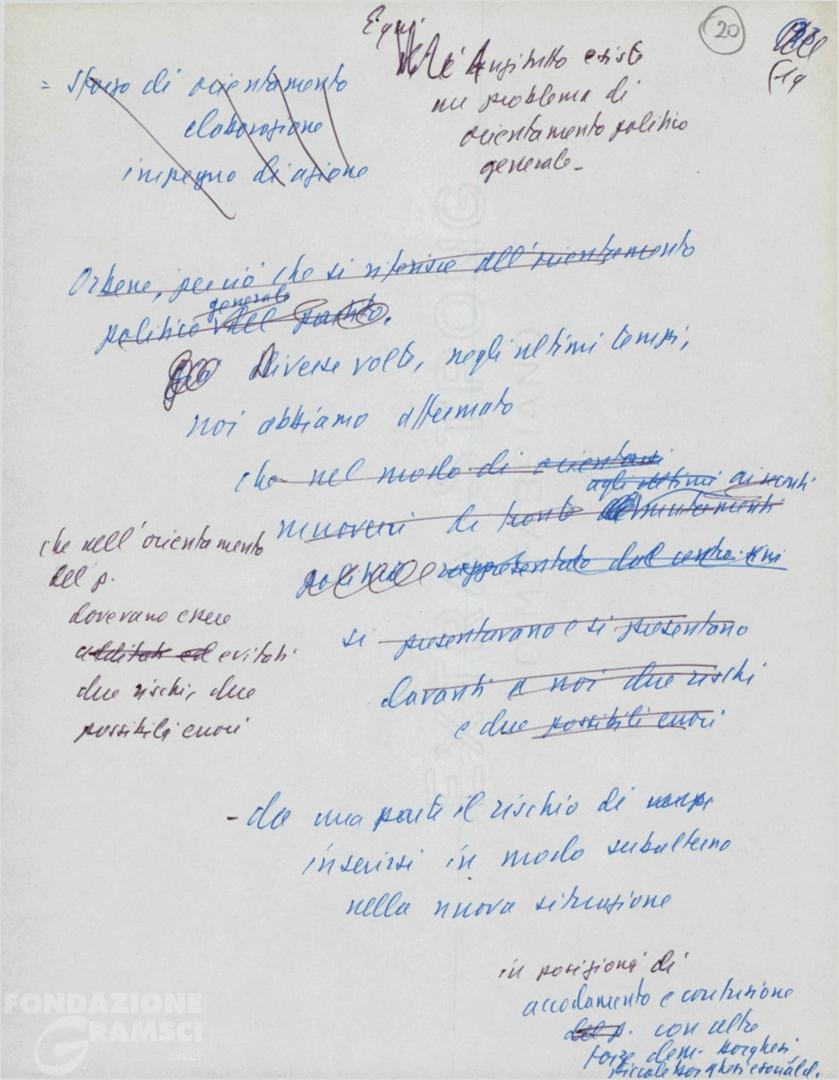 20
E qui
Anzitutto esiste
un problema di
orientamento politico
generale -
= Sforzo di orientamento
elaborazione
impegno di azione
Orbene, per ciò che si riferisce all'orientamento
generale
politico del partito.
Diverse volte, negli ultimi tempi,
noi abbiamo affermato
che nel modo di
muoversi di fronte
politico rappresentato dal centro-sini
si presentavano e si presentano
davanti a noi due rischi
e due possibili errori
che nell'orientamento
del p.
dovevano essere
additati ed evitati
due rischi, due
possibili errori
- da una parte il rischio di
inserirsi in modo subalterno
nella nuova situazione
in posizioni di
accodamento e confusione
del p. con altre
forze dem. borghesi,
piccolo borghesi e socialdem.
FONDAZIONE
GRAMSCI
onlus